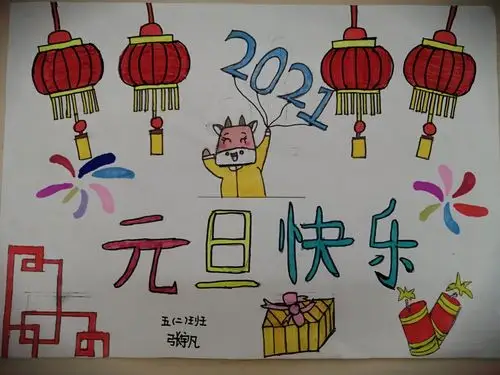 2021
元旦快乐
五(二)班
张宇凡